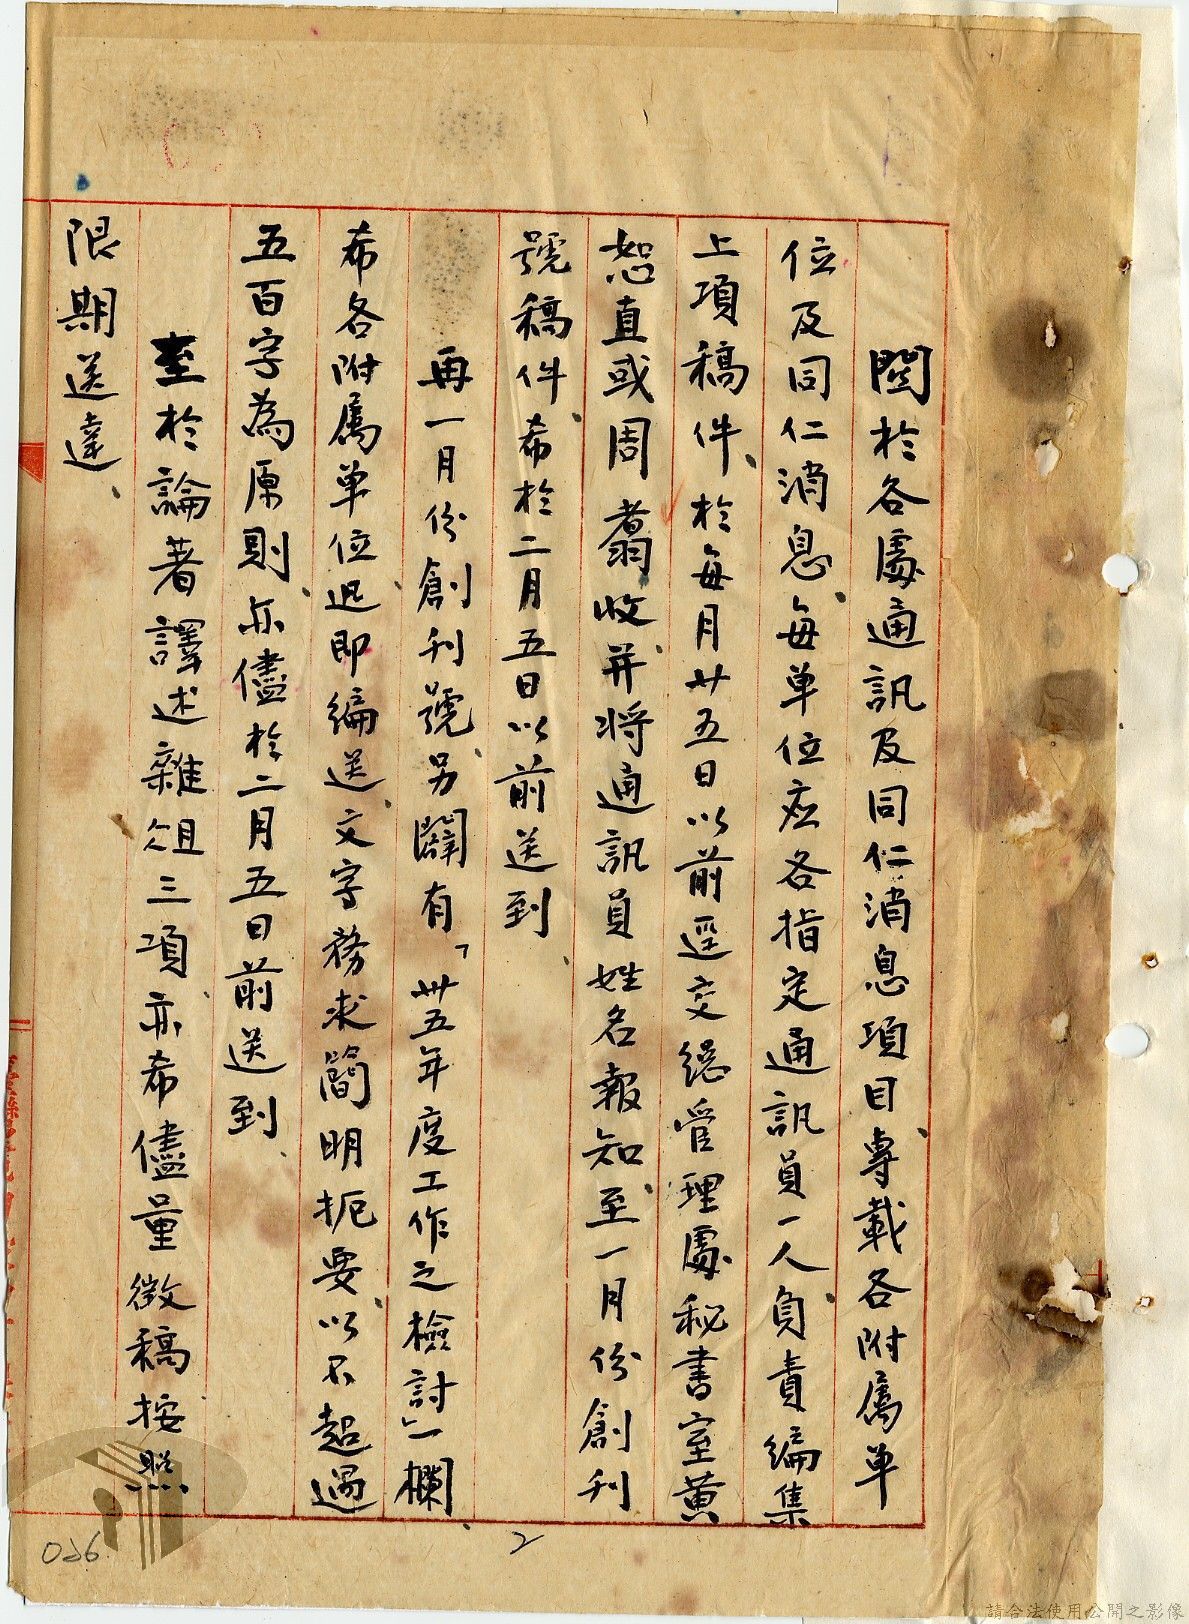 關於各處通訊及同仁消息項目專載各附屬單
位及同仁消息每單位应各指定通訊員一人負責編集
上項稿件於每月廿五日以前逕交總管理處秘書室黄
恕直或周翥收并将通訊員姓名報知至一月份創刊
號稿件希於二月五日以前送到
再一月份創刊號另闢有「卅五年度工作之檢討」一欄
希各附屬单位迅即編送文字務求簡明扼要以不超過
五百字為原則亦儘於二月五日前送到
至於論著譯述雜俎三項亦希儘量徵稿按照
限期送達
2
026
請合法使用公開之影像